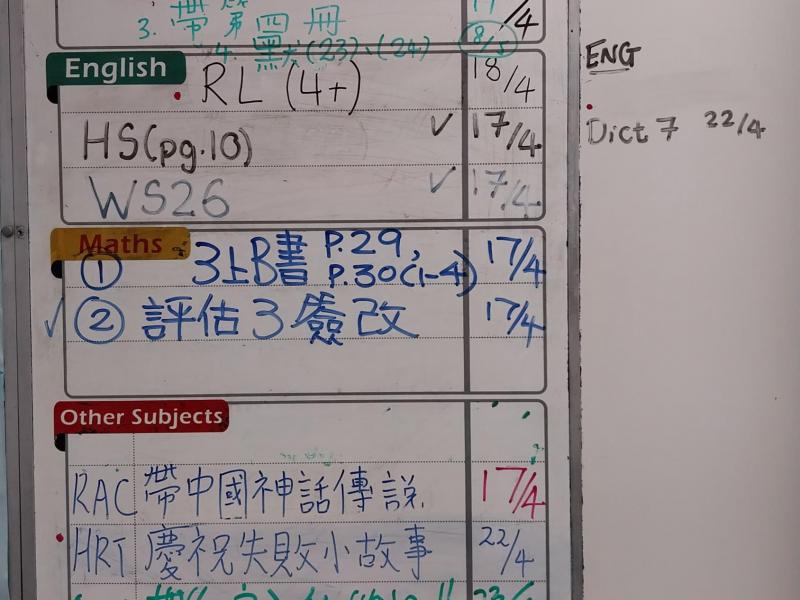 3. 帶第四冊 17/4
4. 默六(23)、(24) 18/5
English
RL (4+) 18/4
HS(pg.10) ✓ 17/4
WS26 ✓ 17/4
ENG
Dict 7 22/4
Maths
① 3上B書 P.29, P.30(1-4) 17/4
✓ ② 評估3簽改 17/4
Other Subjects
RAC 帶中國神話傳說. 17/4
HRT 慶祝失敗小故事 22/4
23/4